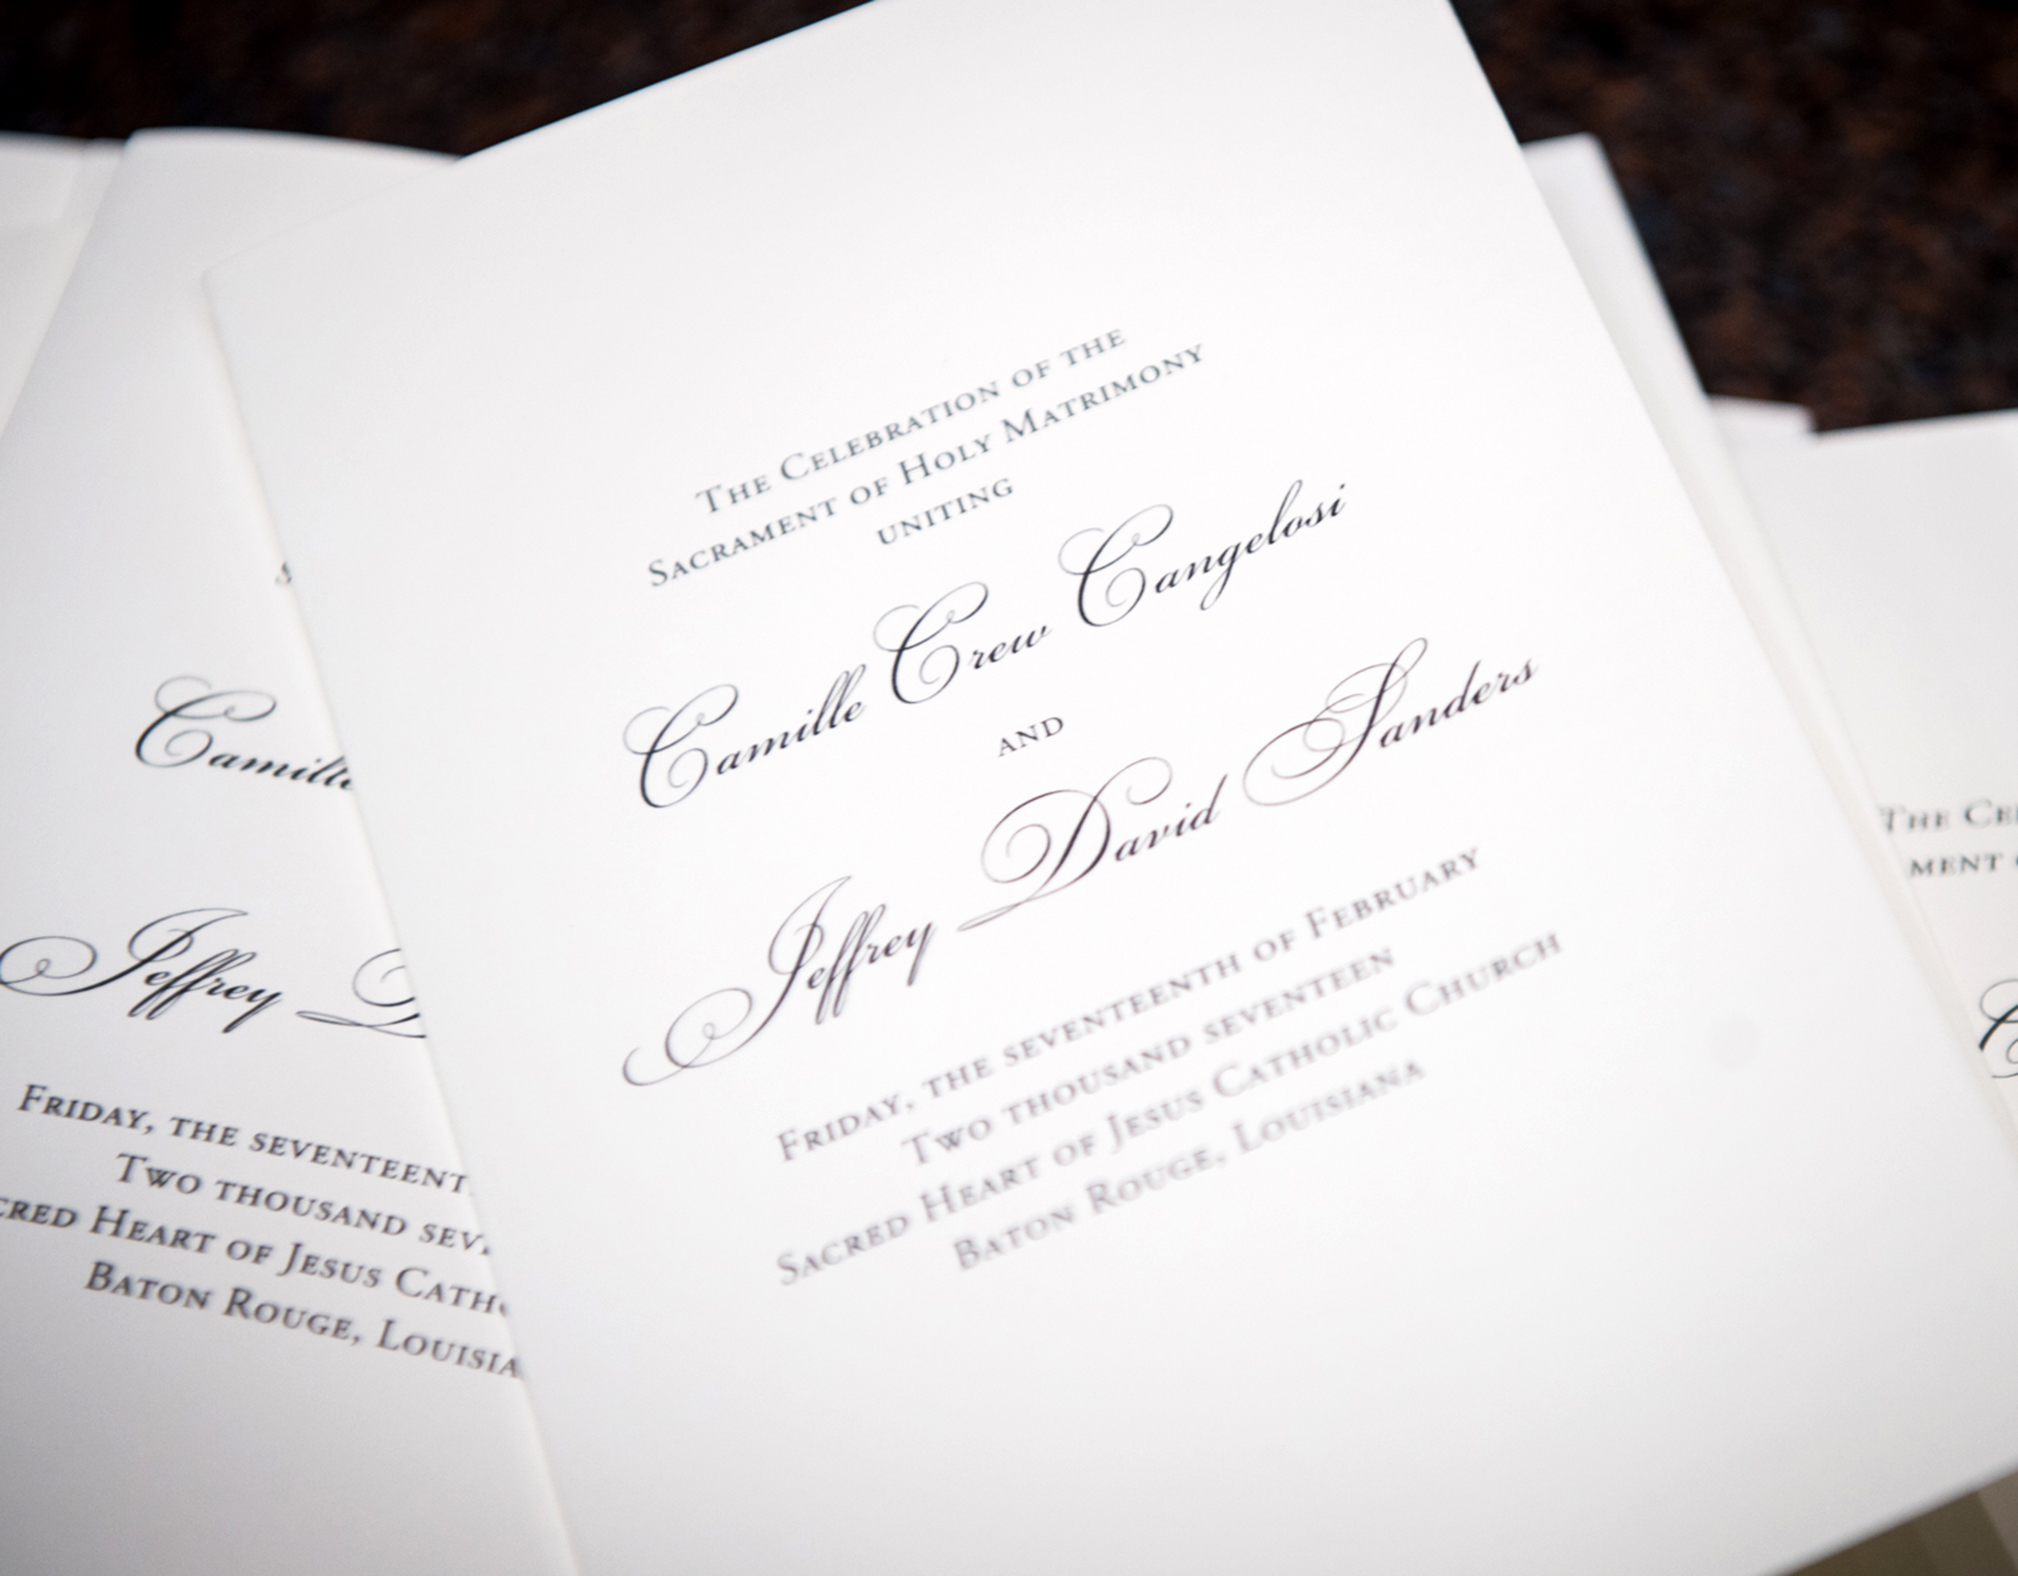 The Celebration of the
Sacrament of Holy Matrimony
uniting
Camille Crew Cangelosi
and
Jeffrey David Sanders
Friday, the seventeenth of February
Two thousand seventeen
Sacred Heart of Jesus Catholic Church
Baton Rouge, Louisiana
Camille
Jeffrey D
Friday, the seventeent
Two thousand sev
cred Heart of Jesus Cath
Baton Rouge, Louisia
The Ce
ment
C